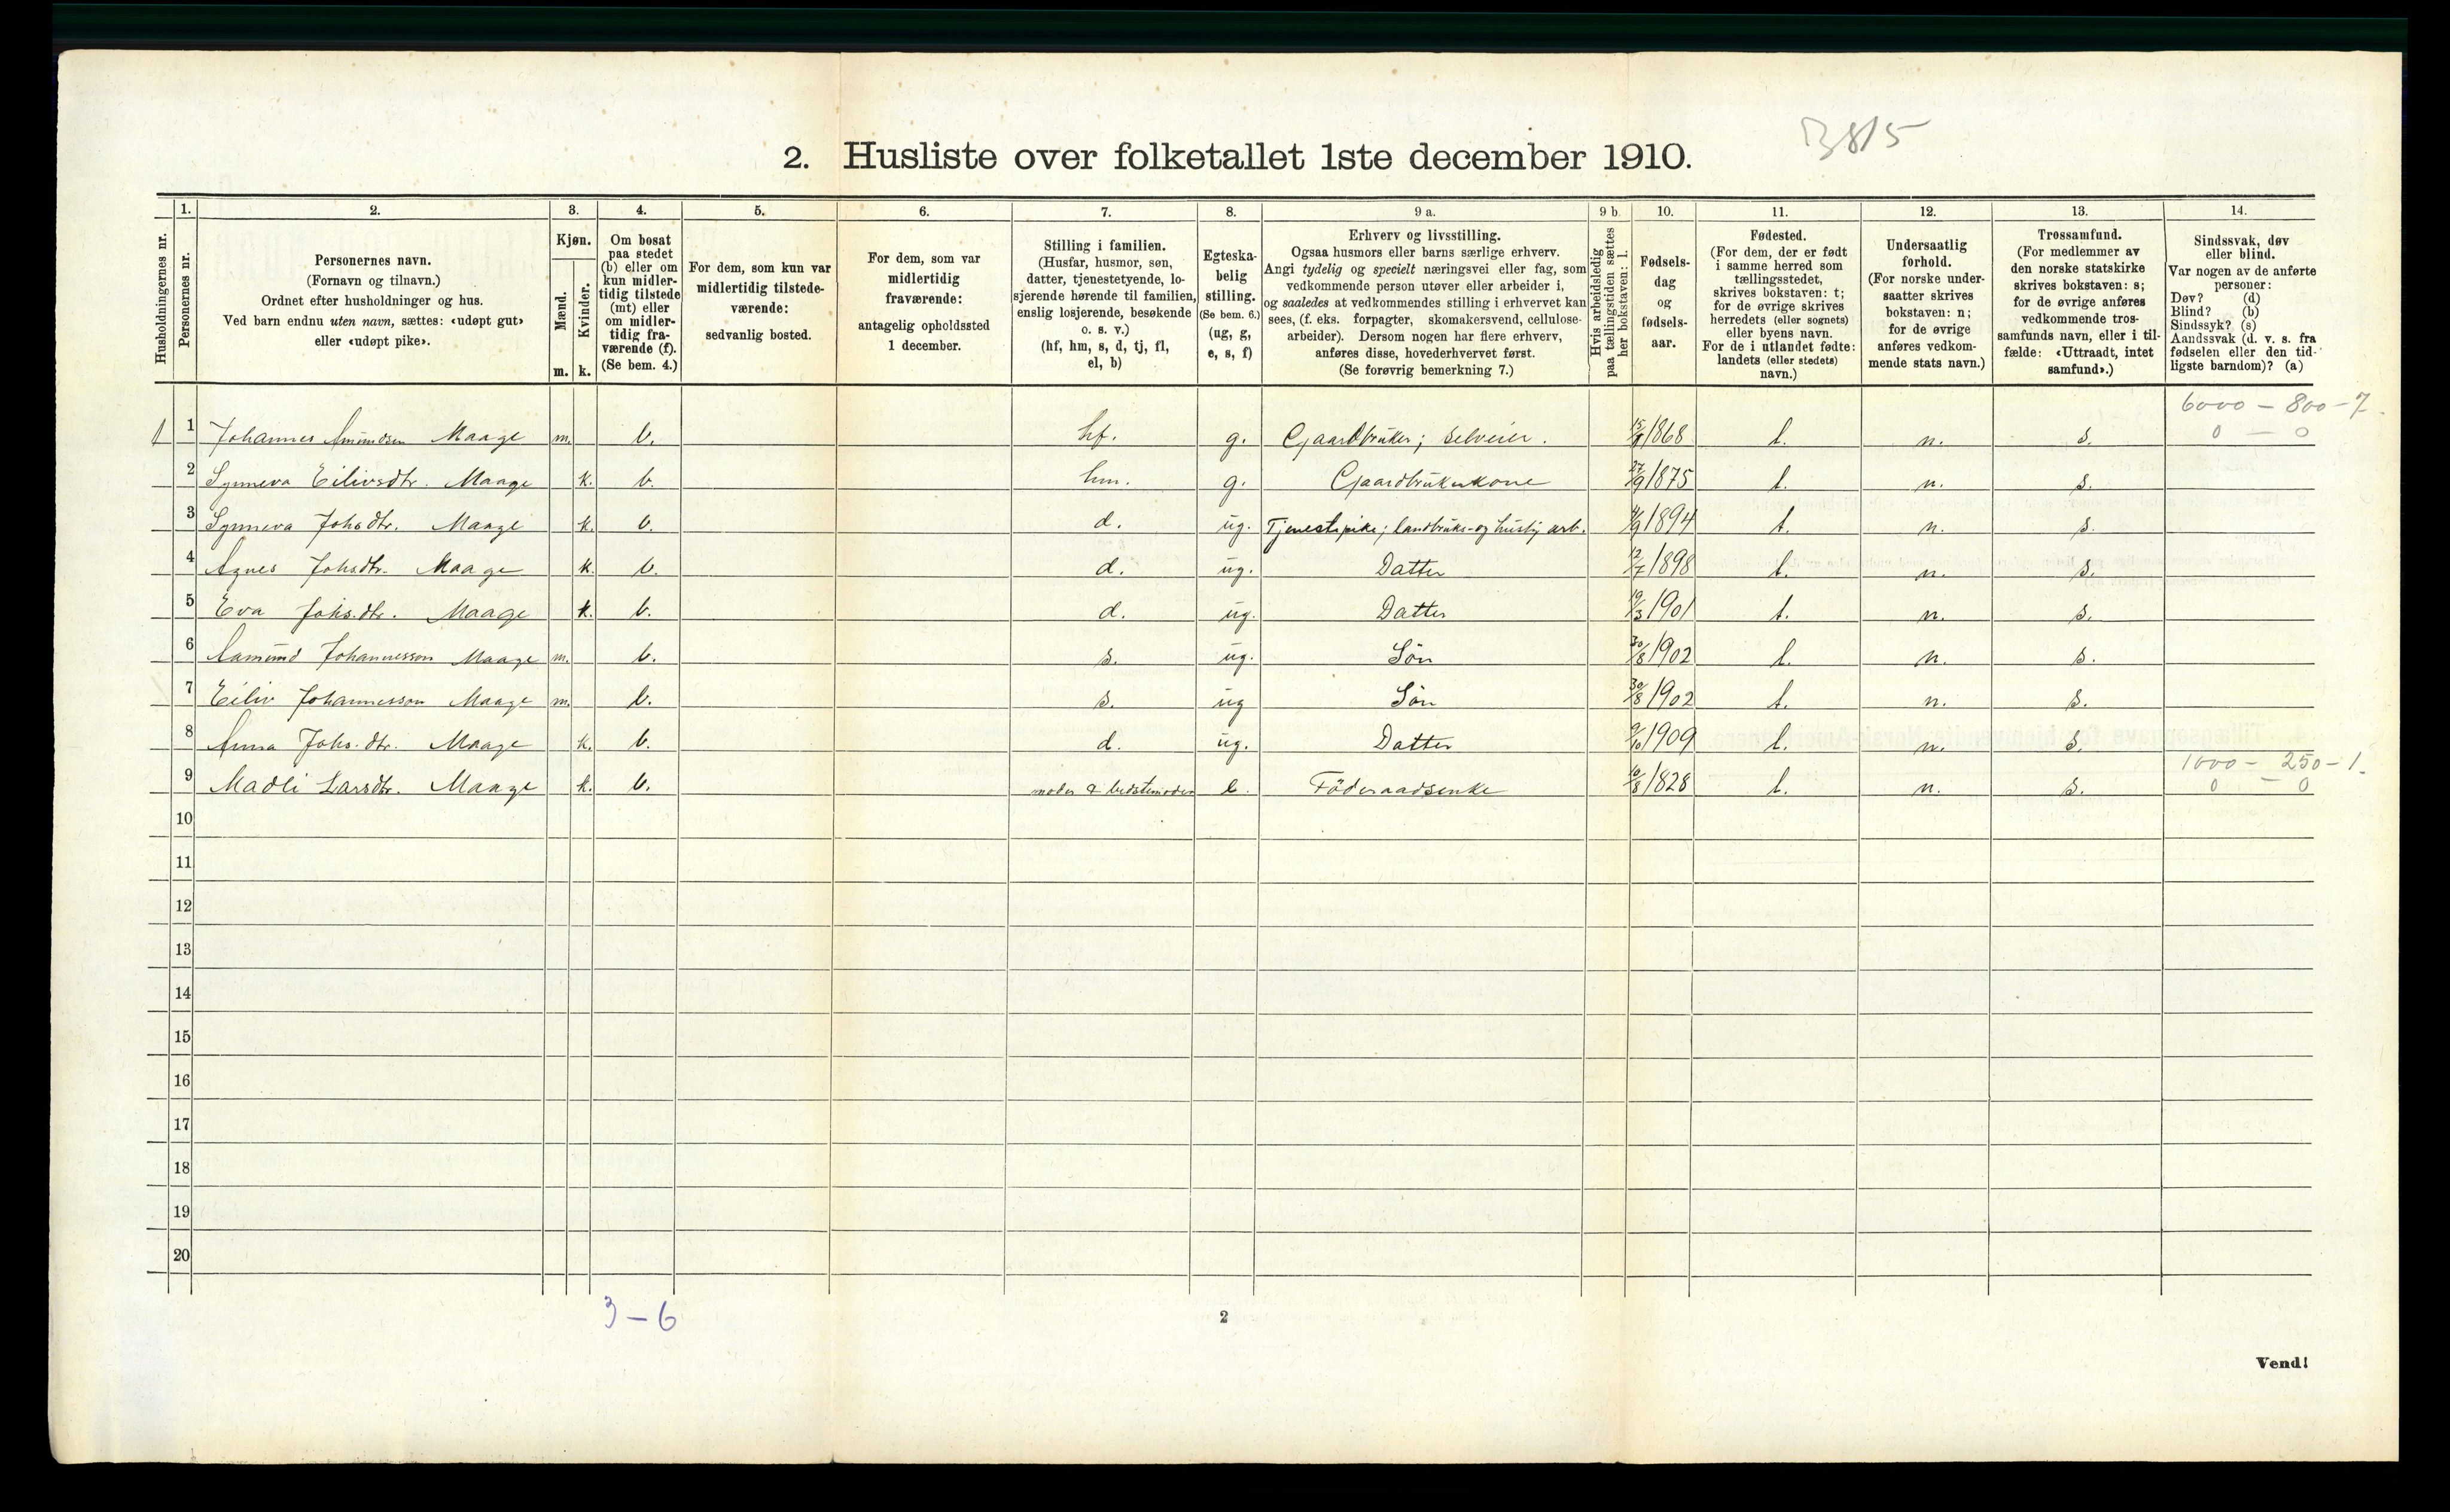 B815
2. Husliste over folketallet 1ste december 1910.
Husholdningernes nr.
1.
Personernes nr.
2.
Personernes navn.
(Fornavn og tilnavn.)
Ordnet efter husholdninger og hus.
Ved barn endnu uten navn, sættes: «udøpt gut»
eller «udøpt pike».
3.
Kjøn.
Mænd.
Kvinder.
m. k.
4.
Om bosat
paa stedet
(b) eller om
kun midler-
tidig tilstede
(mt) eller
om midler-
tidig fra-
værende (f).
(Se bem. 4.)
5.
For dem, som kun var
midlertidig tilstede-
værende:
sedvanlig bosted.
6.
For dem, som var
midlertidig
fraværende:
antagelig opholdssted
1 december.
7.
Stilling i familien.
(Husfar, husmor, søn,
datter, tjenestetyende, lo-
sjerende hørende til familien,
enslig losjerende, besøkende
o. s. v.)
(hf, hm, s, d, tj, fl,
el, b)
8.
Egteska-
belig
stilling.
(Se bem. 6.)
(ug, g,
e, s, f)
9 a.
Erhverv og livsstilling.
Ogsaa husmors eller barns særlige erhverv.
Angi tydelig og specielt næringsvei eller fag, som
vedkommende person utøver eller arbeider i,
og saaledes at vedkommendes stilling i erhvervet kan
sees, (f. eks. forpagter, skomakersvend, cellulose-
arbeider). Dersom nogen har flere erhverv,
anføres disse, hovederhvervet først.
(Se forøvrig bemerkning 7.)
9 b.
Hvis arbeidsledig
paa tællingstiden sættes
her bokstaven: l.
10.
Fødsels-
dag
og
fødsels-
aar.
11.
Fødested.
(For dem, der er født
i samme herred som
tællingsstedet,
skrives bokstaven: t;
for de øvrige skrives
herredets (eller sognets)
eller byens navn.
For de i utlandet fødte:
landets (eller stedets)
navn.)
12.
Undersaatlig
forhold.
(For norske under-
saatter skrives
bokstaven: n;
for de øvrige
anføres vedkom-
mende stats navn.)
13.
Trossamfund.
(For medlemmer av
den norske statskirke
skrives bokstaven: s;
for de øvrige anføres
vedkommende tros-
samfunds navn, eller i til-
fælde: «Uttraadt, intet
samfund».)
14.
Sindssvak, døv
eller blind.
Var nogen av de anførte
personer:
Døv? (d)
Blind? (b)
Sindssyk? (s)
Aandssvak (d. v. s. fra
fødselen eller den tid-
ligste barndom)? (a)
6000 - 800 - 7.
1 1 Johannes Amundsen Maage m. b. hf. g. Gaardbruker; selveier. 1868 t. n. s. 0 - 0
2 Synneva Eilivsdtr. Maage k. b. hm. g. Gaardbrukerkone 27/9 1875 t. n. s.
3 Synneva Johsdtr. Maage k. b. d. ug. Tjenestepike; landbruks- og husly arb. 4/9 1894 t. n. s.
4 Agnes Johsdtr. Maage k. b. d. ug. Datter 12/7 1898 t. n. s.
5 Eva Johs.dtr. Maage k. b. d. ug. Datter 19/3 1901 t. n. s.
6 Aamund Johannesson Maage m. b. s. ug. Søn 30/8 1902 t. n. s.
7 Eiliv Johannesson Maage m. b. s. ug Søn 30/8 1902 t. n. s.
8 Anna Johs.dtr. Maage k. b. d. ug. Datter 9/10 1909 t. n. s.
1000 - 250 - 1.
9 Madli Larsdtr. Maage k. b. moder & bedstemoder e. Föderaadsenke 10/8 1828 t. n. s. 0 - 0
10
11
12
13
14
15
16
17
18
19
20
3 - 6
2
Vend!